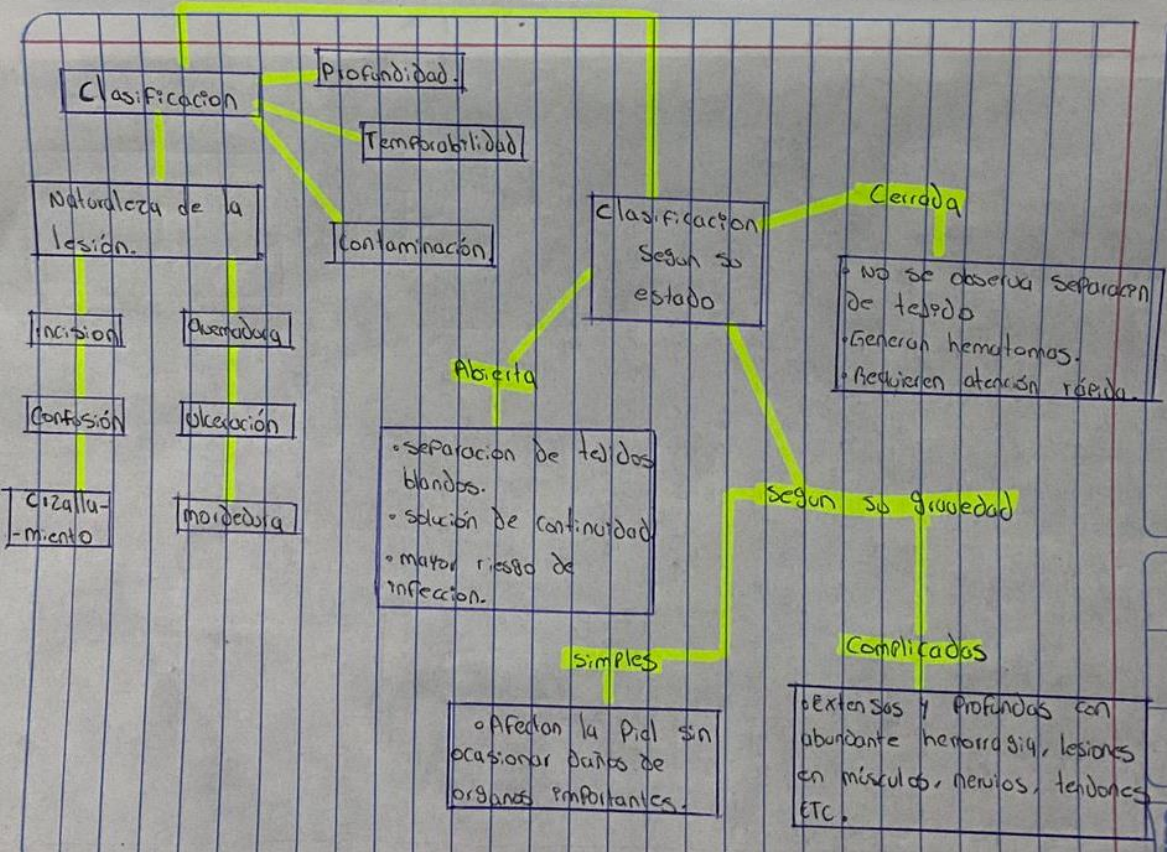 Clasificacion
Profundidad.
Temporabilidad
Contaminación
Naturaleza de la
lesión.
incision
Contusión
Cizalla-
-miento
Quemadura
Ulceración
mordedura
Clasificacion
Segun su
estado
Cerrada
• No se observa separacion
de tejido
• Generan hematomas.
• Requieren atención rápida.
Abierta
• separación de tejidos
blandos.
• solución de continuidad
• mayor riesgo de
infeccion.
segun su gravedad
simples
• Afectan la Piel sin
ocasionar daños de
organos importantes.
Complicadas
• Extensas y Profundas con
abundante hemorragia, lesiones
en músculos, nervios, tendones
ETC.